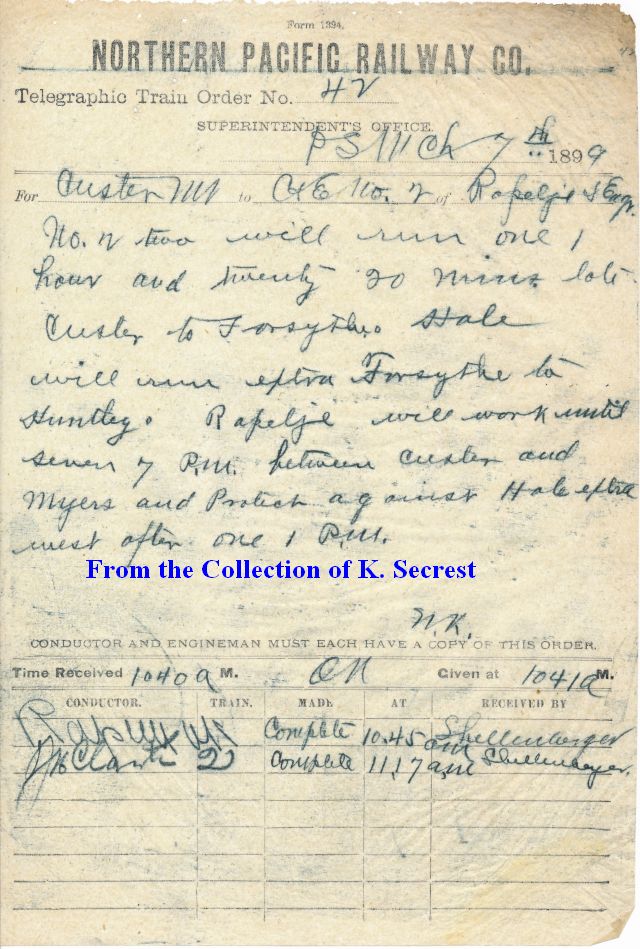 Form 1394.
NORTHERN PACIFIC RAILWAY CO.
Telegraphic Train Order No. 42
SUPERINTENDENT'S OFFICE.
Mch 7th 1899
For Custer to C&E No. 2 of Rapelje & Engr.
No. 2 two will run one 1
hour and twenty 20 mins. late
Custer to Forsythe. Hale
will run extra Forsythe to
Huntley. Rapelje will work until
seven 7 P.M. between Custer and
Myers and Protect against Hale extra
west after one 1 P.M.
From the Collection of K. Secrest
N.K.
CONDUCTOR AND ENGINEMAN MUST EACH HAVE A COPY OF THIS ORDER.
Time Received 1040a M. OK Given at 1041a M.
CONDUCTOR. TRAIN. MADE AT RECEIVED BY
Complete 10.45 am Shellenberger
Clark 2 Complete 11.17 am Shellenberger.